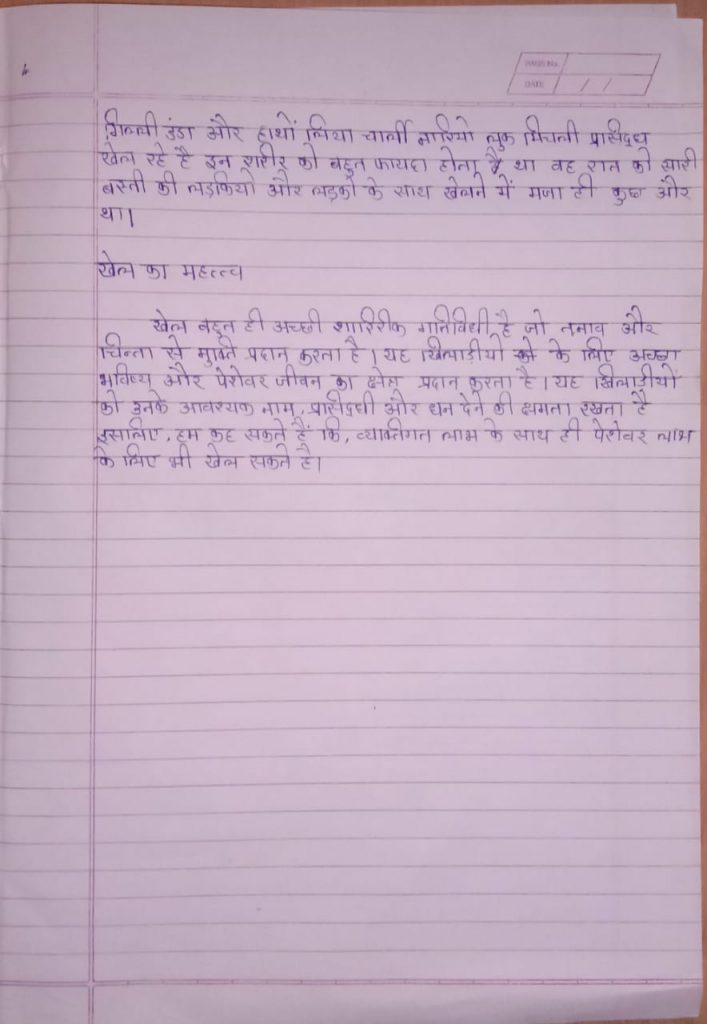 PAGE No.
DATE / /
गिल्ली डंडा और हाथों लिया चार्ली नारियो लुक मिचली प्रसिद्ध
खेल रहे है इन शरीर को बहुत फायदा होता है था वह रात को सारी
बस्ती की लड़कियो और लड़को के साथ खेलने में मजा ही कुछ और
था।
खेल का महत्त्व
खेल बहुत ही अच्छी शारिरीक गतिविधी है जो तनाव और
चिन्ता से मुक्ति प्रदान करता है। यह खिलाड़ीयो के लिए अच्छा
भविष्य और पेशेवर जीवन का क्षेत्र प्रदान करता है। यह खिलाड़ीयों
को उनके आवश्यक नाम, प्रसिद्धी और धन देने की क्षमता रखता है
इसलिए, हम कह सकते हैं कि, व्यक्तिगत लाभ के साथ ही पेशेवर लाभ
के लिए भी खेल सकते है।